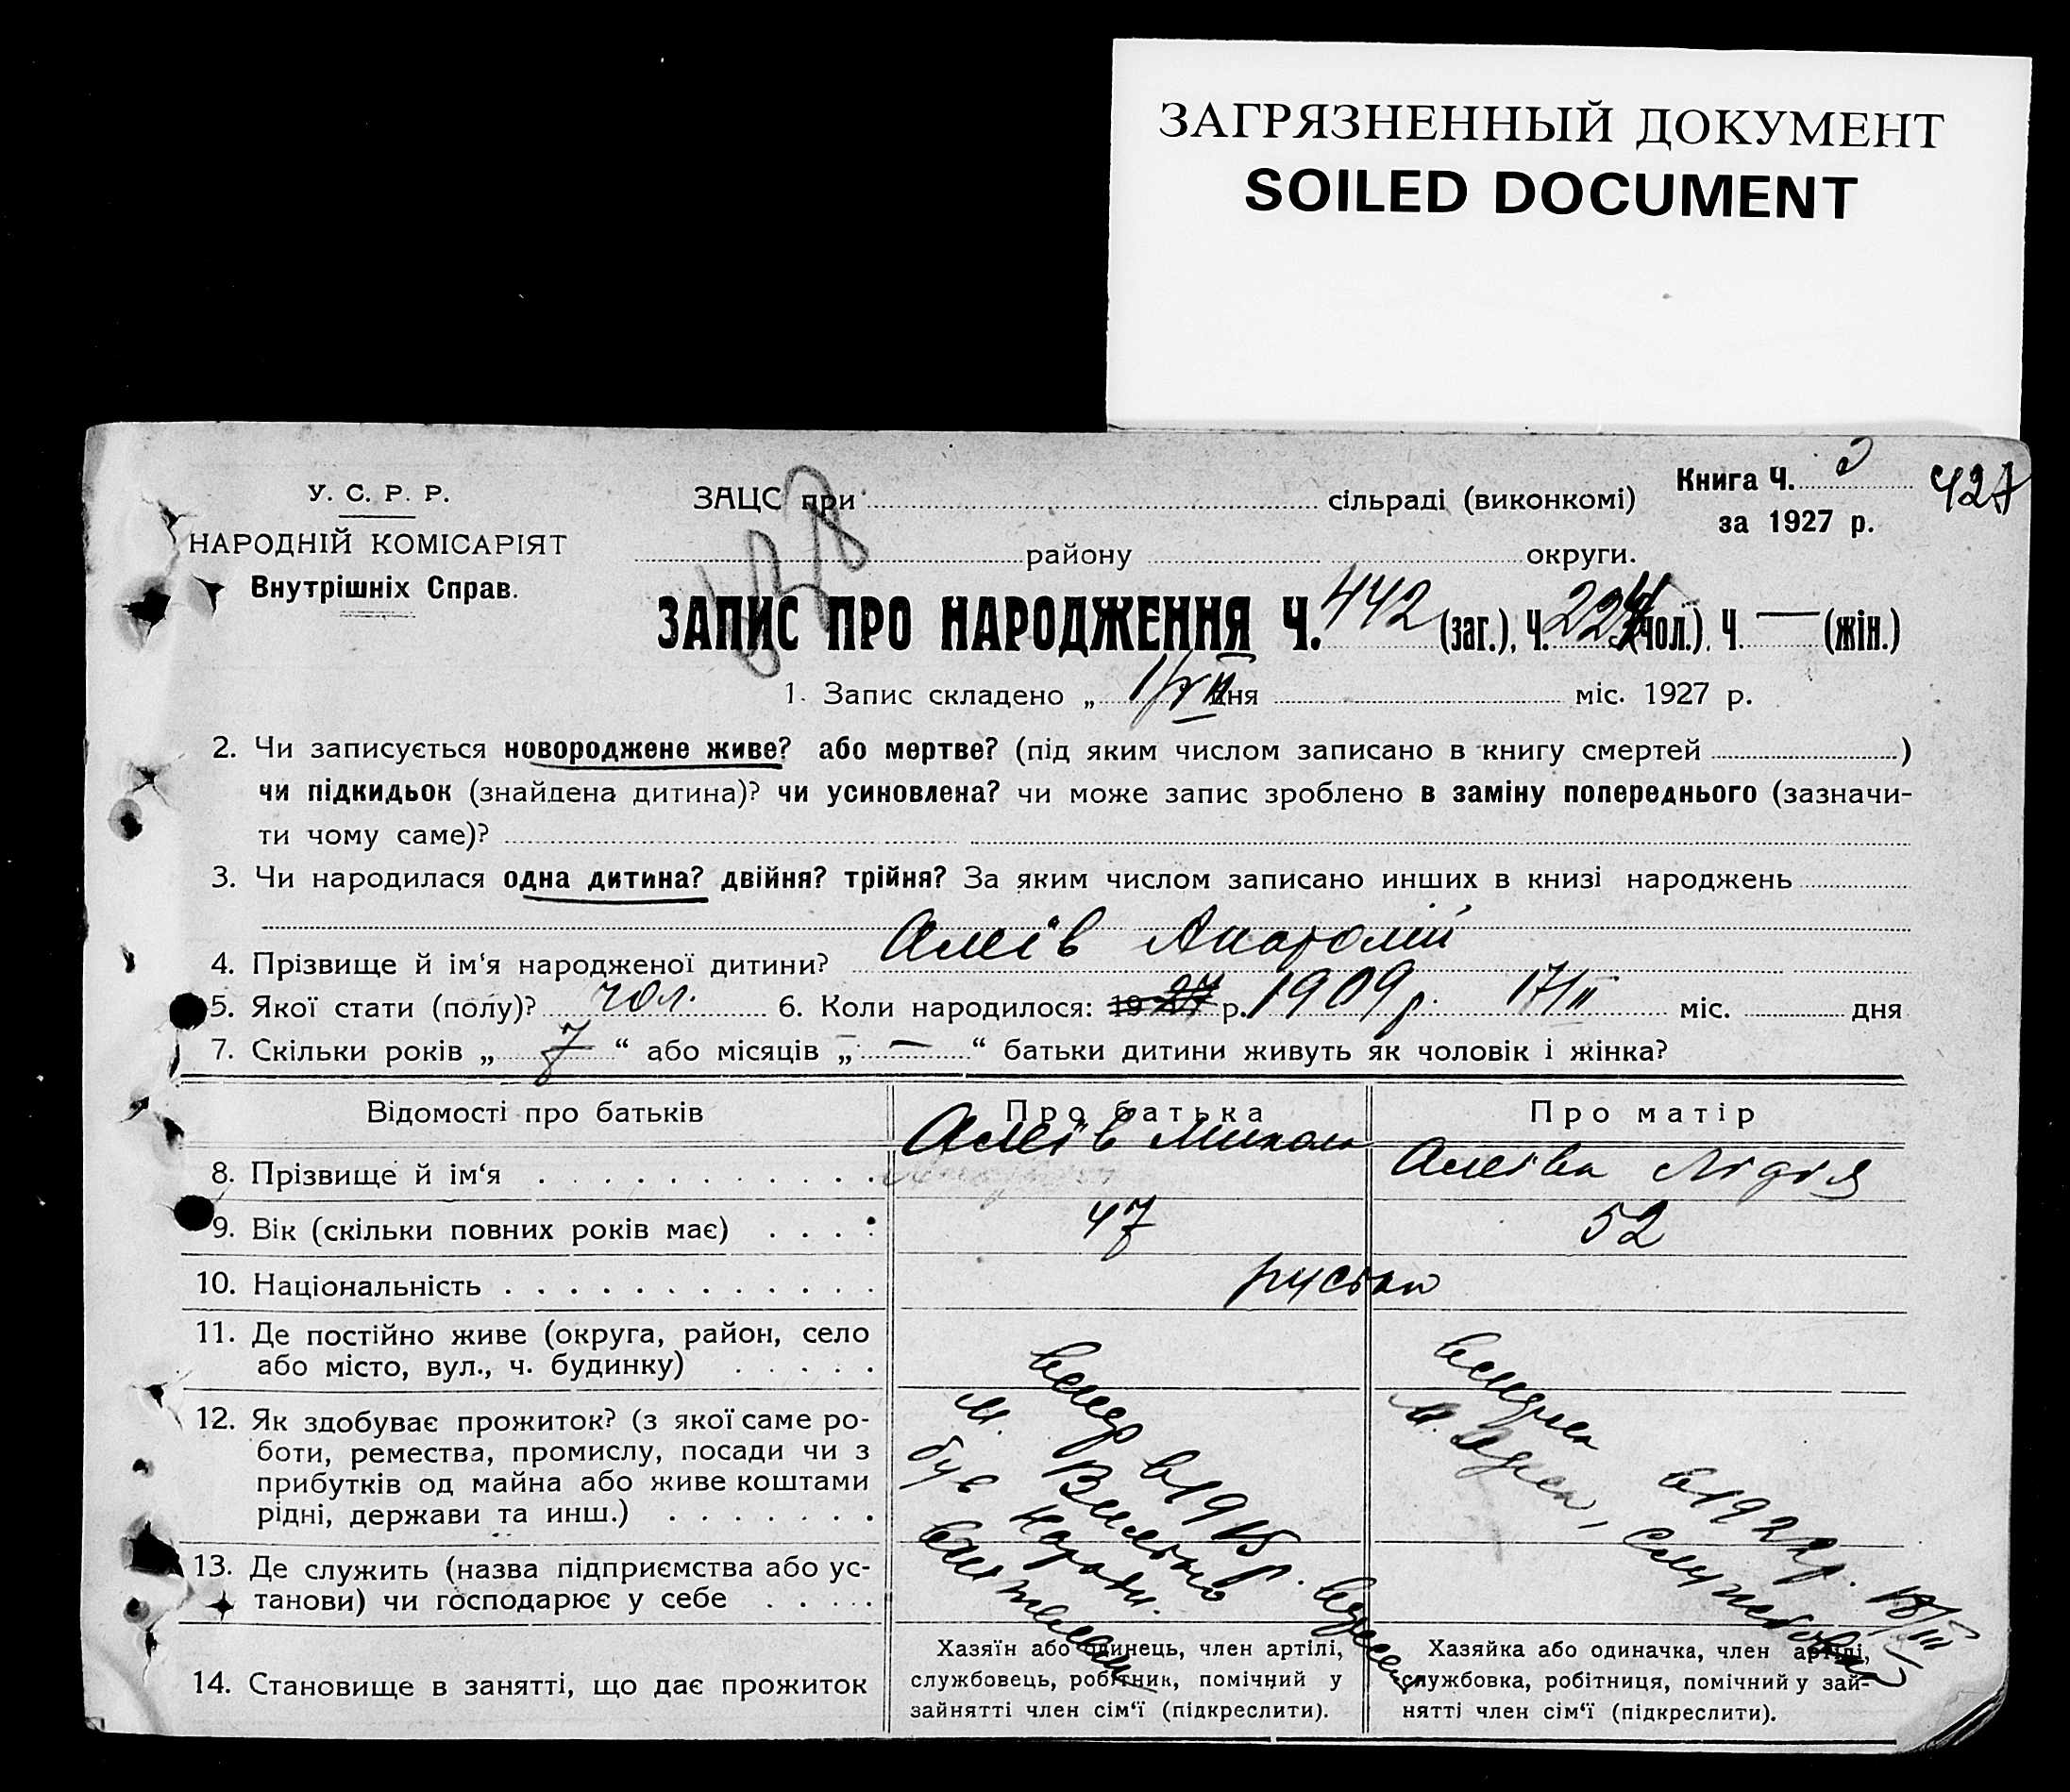 ЗАГРЯЗНЕННЫЙ ДОКУМЕНТ
SOILED DOCUMENT
У. С. Р. Р.
НАРОДНІЙ КОМІСАРІЯТ
Внутрішніх Справ.
ЗАЦС при сільраді (виконкомі)
Книга Ч. 427
за 1927 р.
району округи.
ЗАПИС ПРО НАРОДЖЕННЯ Ч. 442 (заг.), Ч. 224 (чол.), Ч. — (жін.)
1. Запис складено „ дня міс. 1927 р.
2. Чи записується новороджене живе? або мертве? (під яким числом записано в книгу смертей )
чи підкидьок (знайдена дитина)? чи усиновлена? чи може запис зроблено в заміну попереднього (зазначи-
ти чому саме)?
3. Чи народилася одна дитина? двійня? трійня? За яким числом записано инших в книзі народжень
4. Прізвище й ім'я народженої дитини? Алеїв Анатолій
5. Якої стати (полу)? чол. 6. Коли народилось: 1927 р. 1909 р. 17/II міс. дня
7. Скільки років „ 7 “ або місяців „ — “ батьки дитини живуть як чоловік і жінка?
Відомості про батьків
Про батька
Про матір
8. Прізвище й ім'я
Алеїв Микола
Алеїва Лідія
9. Вік (скільки повних років має)
47
52
10. Національність
руськи
11. Де постійно живе (округа, район, село
або місто, вул., ч. будинку)
12. Як здобуває прожиток? (з якої саме ро-
боти, ремества, промислу, посади чи з
прибутків од майна або живе коштами
рідні, держави та инш.)
13. Де служить (назва підприємства або ус-
танови) чи господарює у себе
вмер в 1915 р.
м. Вильно
був
вчителем
вмерла в 1922 р. 18/III
м. Одеса,
14. Становище в занятті, що дає прожиток
Хазяїн або одинець, член артілі,
службовець, робітник, помічний у
зайнятті член сім'ї (підкреслити).
Хазяйка або одиначка, член артілі,
службовка, робітниця, помічний у зай-
нятті член сім'ї (підкреслити).